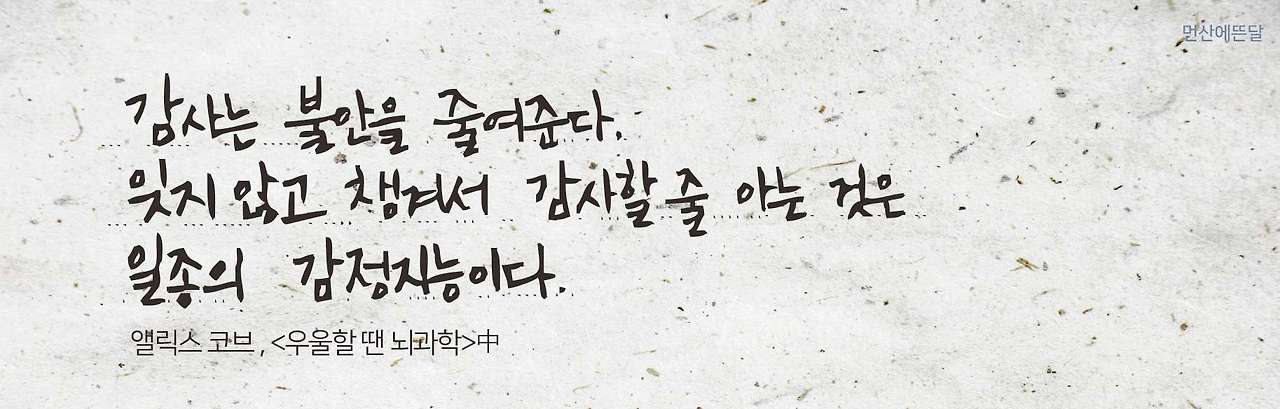 먼산에뜬달
감사는 불안을 줄여준다.
잊지 않고 챙겨서 감사할 줄 아는 것은
일종의 감정지능이다.
앨릭스 코브, <우울할 땐 뇌과학>中